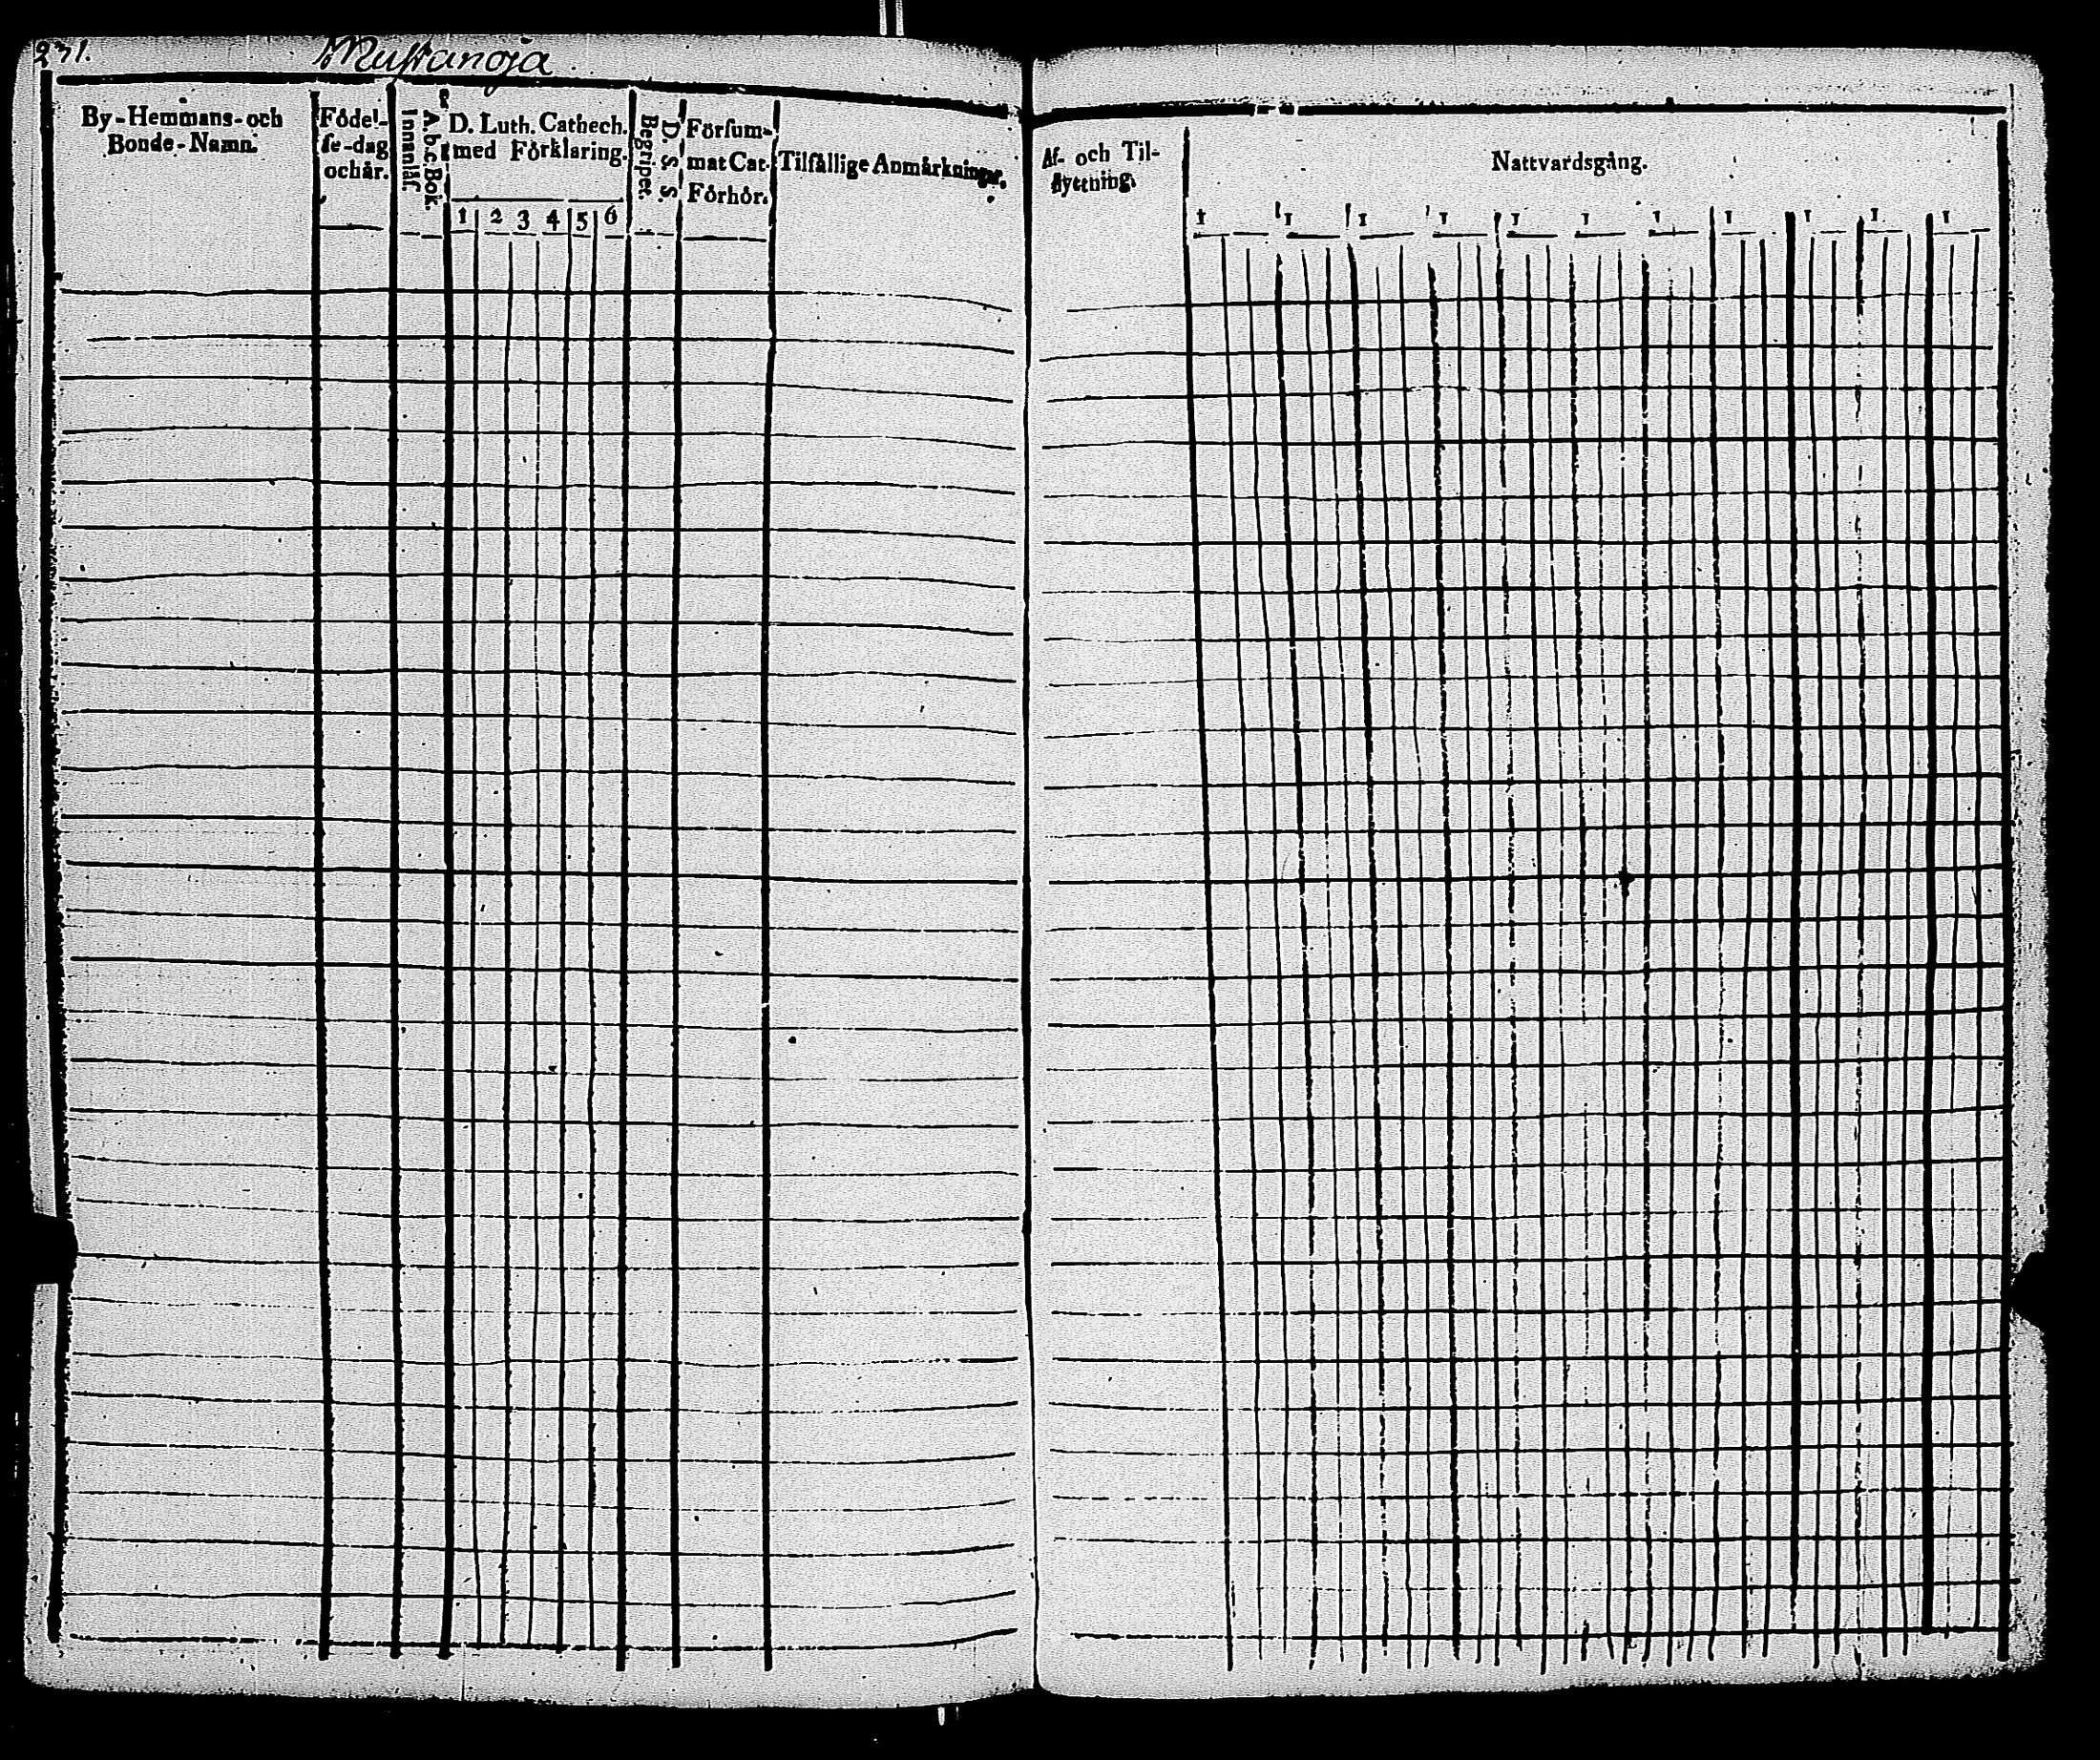 271.
Mustanoja
By-Hemmans-och
Bonde-Namn.
Födel-
se-dag
och år.
A.b.c.Bok.
Innanläs.
D. Luth. Cathech.
med Förklaring.
1 2 3 4 5 6
D. S. S.
Begripet.
Försum-
mat Cat.
Förhör.
Tilfällige Anmärkningar.
Af- och Til-
flyttning.
Nattvardsgång.
1 1 1 1 1 1 1 1 1 1 1